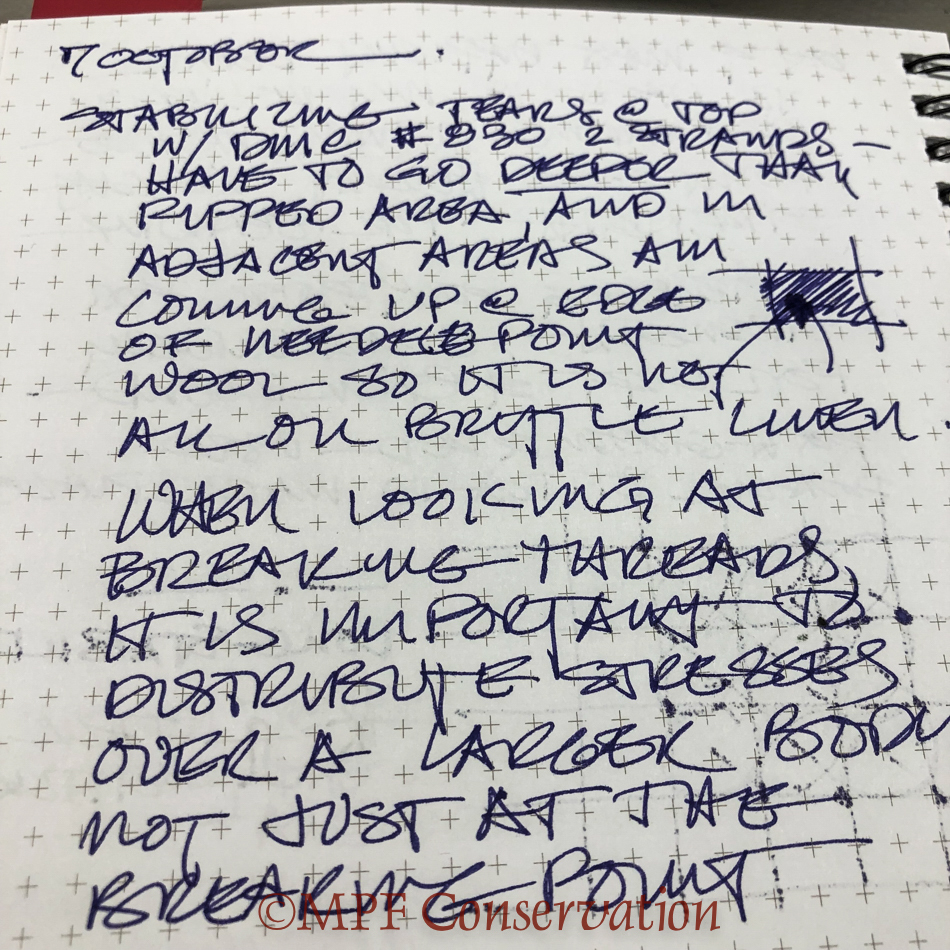 7 OCTOBER
STABILIZING TEARS @ TOP
W/ DMC # 930 2 STRANDS –
HAVE TO GO DEEPER THAN
RIPPED AREA, AND IN
ADJACENT AREAS AM
COMING UP @ EDGE
OF NEEDLEPOINT
WOOL SO IT IS NOT
ALL ON BRITTLE LINEN.
WHEN LOOKING AT
BREAKING THREADS,
IT IS IMPORTANT TO
DISTRIBUTE STRESSES
OVER A LARGER BODY
NOT JUST AT THE
BREAKING POINT
©MPF Conservation